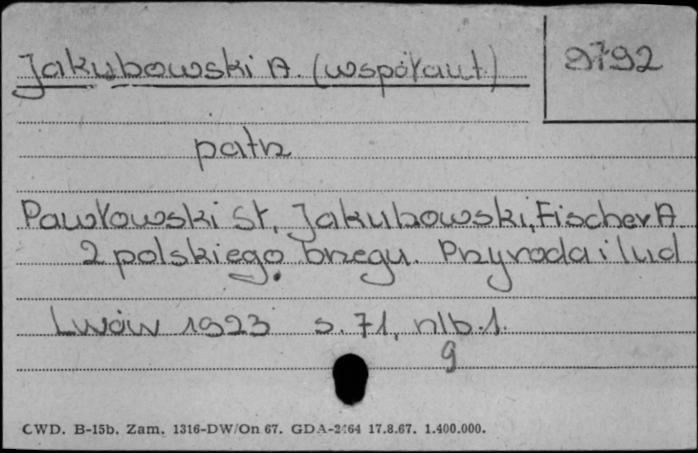 Jakubowski A. (współaut.)
9792
patrz
Pawłowski St., Jakubowski, Fischer A
Z polskiego brzegu. Przyroda i lud
Lwów 1923 s. 71, nlb. 1.
9
CWD. B-15b. Zam. 1316-DW/On 67. GDA-2464 17.8.67. 1.400.000.